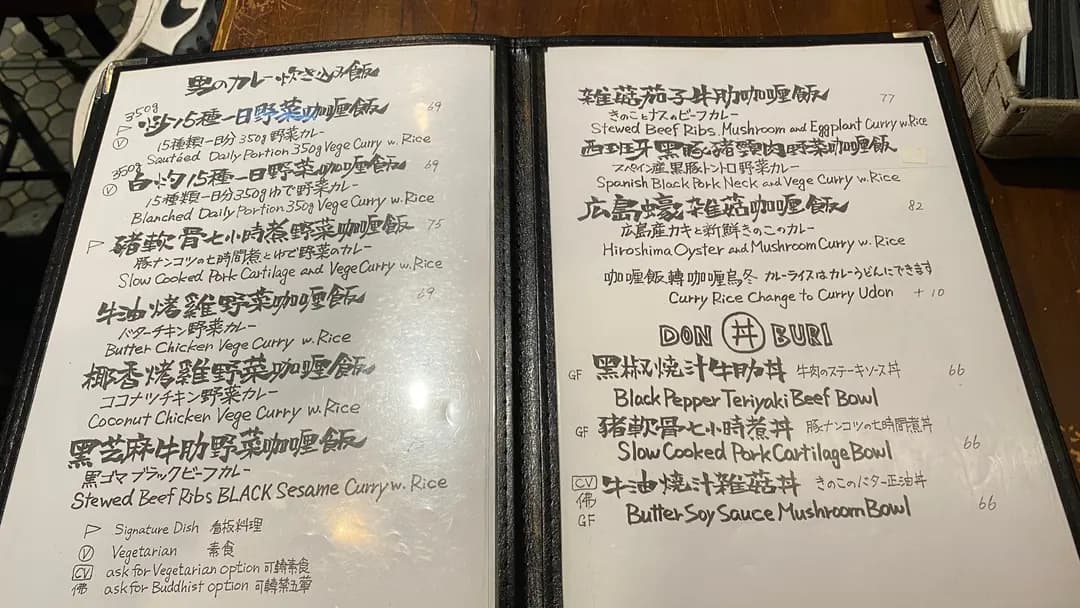 男のカレー炊き込み飯
350g
炒15種一日野菜咖喱飯 69
15種類一日分350g野菜カレー
Sautéed Daily Portion 350g Vege Curry w. Rice
350g
Ⓥ 白灼15種一日野菜咖喱飯 69
15種類一日分350gゆで野菜カレー
Blanched Daily Portion 350g Vege Curry w. Rice
豬軟骨七小時煮野菜咖喱飯 75
豚ナンコツの七時間煮とゆで野菜のカレー
Slow Cooked Pork Cartilage and Vege Curry w. Rice
牛油烤雞野菜咖喱飯 69
バターチキン野菜カレー
Butter Chicken Vege Curry w. Rice
椰香烤雞野菜咖喱飯
ココナツチキン野菜カレー
Coconut Chicken Vege Curry w. Rice
黑芝麻牛肋野菜咖喱飯
黒ゴマブラックビーフカレー
Stewed Beef Ribs BLACK Sesame Curry w. Rice
Signature Dish 看板料理
Ⓥ Vegetarian 素食
CV ask for Vegetarian option 可轉素食
佛 ask for Buddhist option 可轉禁五葷
雜菇茄子牛肋咖喱飯 77
きのことナスのビーフカレー
Stewed Beef Ribs, Mushroom and Eggplant Curry w. Rice
西班牙黑豚豬頸肉野菜咖喱飯
スペイン産黒豚トントロ野菜カレー
Spanish Black Pork Neck and Vege Curry w. Rice
広島蠔雜菇咖喱飯 82
広島産カキと新鮮きのこのカレー
Hiroshima Oyster and Mushroom Curry w. Rice
咖喱飯轉咖喱烏冬 カレーライスはカレーうどんにできます
Curry Rice Change to Curry Udon +10
DON 丼 BURI
GF 黑椒燒汁牛肋丼 牛肉のステーキソース丼 66
Black Pepper Teriyaki Beef Bowl
GF 豬軟骨七小時煮丼 豚ナンコツの七時間煮丼 66
Slow Cooked Pork Cartilage Bowl
CV 佛 GF 牛油燒汁雜菇丼 きのこのバター正油丼 66
Butter Soy Sauce Mushroom Bowl